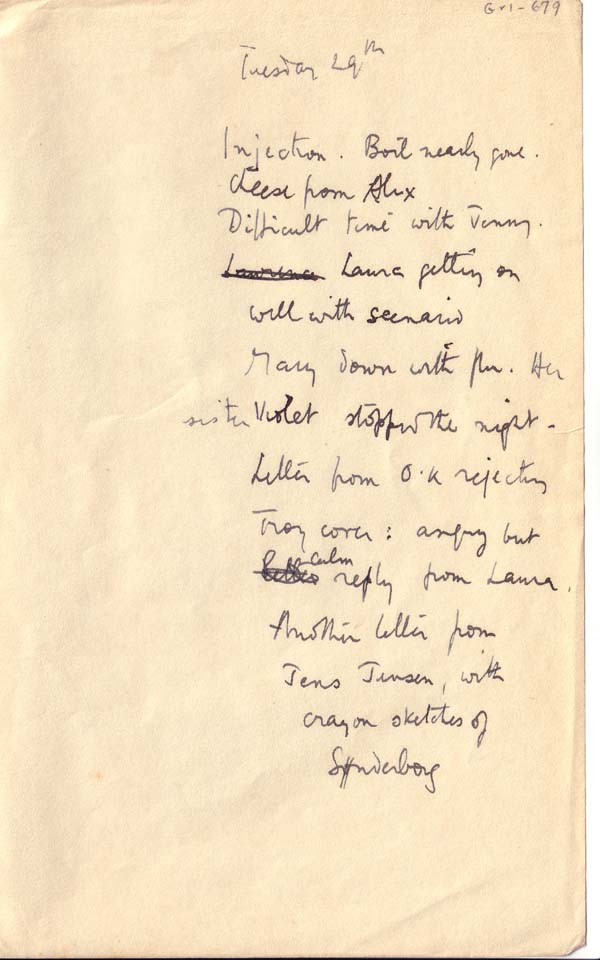 Gr1-679
Tuesday 29th
Injection. Boil nearly gone.
cheese from Alix
Difficult time with Jenny.
Laura getting on
well with scenario
Mary down with flu. Her
sister Violet stopped the night -
Letter from O.K rejecting
Troy cover : angry but
calm
reply from Laura.
Another letter from
Jens Jensen, with
crayon sketches of
Sønderborg